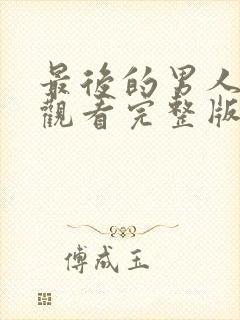 最後的男人
觀看完整版
傅成玉